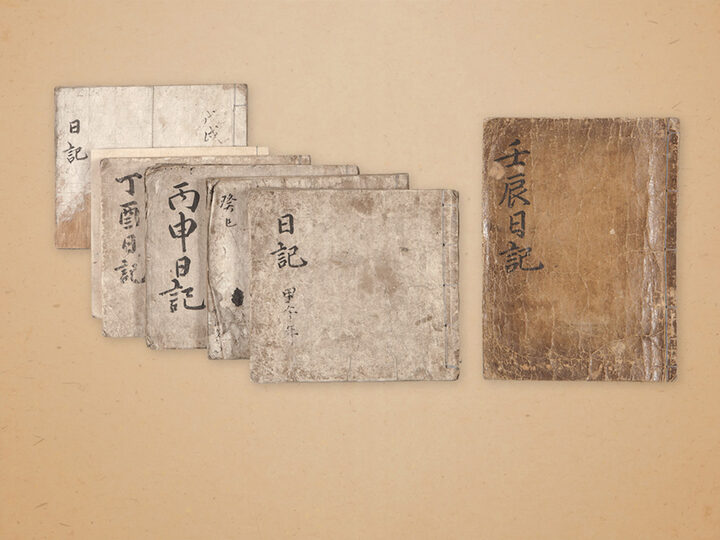 戊戌
日記
丁酉日記
丙申日記
癸巳
日記
甲午年
壬辰日記